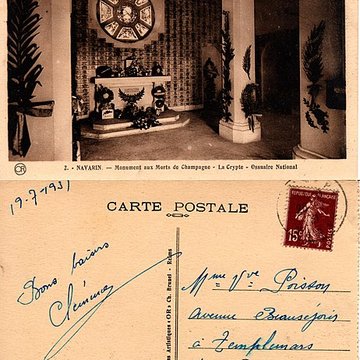 CR
2. - NAVARIN. — Monument aux Morts de Champagne - La Crypte - Ossuaire National
19-7-1931
CARTE POSTALE
RÉPUBLIQUE FRANÇAISE
15c
Bons baisers
Clémence
Artistiques «OR» Ch. Brunel - Reims
Mme Vve Poisson
Avenue Beauséjour
à Templemars